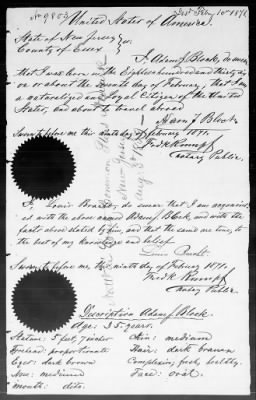 No 9803 Feb 10 1871
United States of America.
State of New Jersey } ss.
County of Essex
I, Adam J. Block, do swear
that I was born in the Eighteen hundred and thirty six
on or about the seventh day of February, that I am
a naturalized and loyal Citizen of the United
States, and about to travel abroad
Adam J Block
Sworn to before me this ninth day of February 1871.
Fredk Rumpf
Notary Public.
I, Louis do swear that I am acquainted
with the above named Adam J Block, and with the
facts above stated by him, and that the same are true, to
the best of my knowledge and belief
Louis
Sworn to before me this ninth day of February 1871.
Fredk Rumpf
Notary Public
Description Adam J Block.
Age: 35 years.
Stature: 5 feet, 7 inches Chin: medium
Forehead: proportionate Hair: dark brown
Eyes: dark brown Complexion: fresh, healthy.
Nose: medium Face: oval.
Mouth: dito.